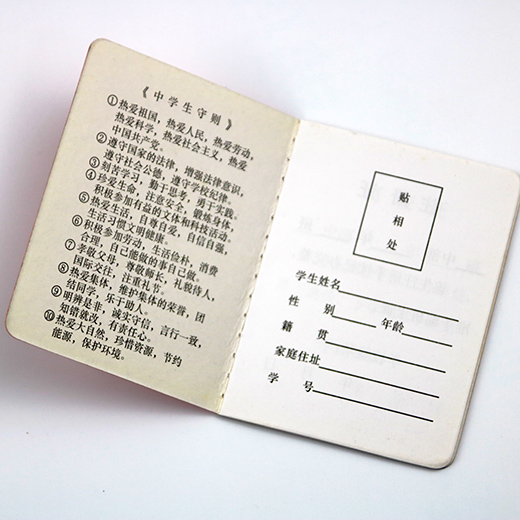 《中学生守则》
①热爱祖国，热爱人民，热爱劳动，
热爱科学，热爱社会主义，热爱
中国共产党。
②遵守国家的法律，增强法律意识，
遵守社会公德，遵守学校纪律。
③刻苦学习，勤于思考，勇于实践。
④珍爱生命，注意安全，锻炼身体，
积极参加有益的文体和科技活动。
⑤热爱生活，自尊自爱，自信自强，
生活习惯文明健康。
⑥积极参加劳动，生活俭朴，消费
合理，自己能做的事自己做。
⑦孝敬父母，尊敬师长，礼貌待人，
国际交往，注重礼节。
⑧热爱集体，维护集体的荣誉，团
结同学，乐于助人。
⑨明辨是非，诚实守信，言行一致，
知错就改，有责任心。
⑩热爱大自然，珍惜资源，节约
能源，保护环境。
贴
相
处
学生姓名
性 别 年龄
籍 贯
家庭住址
学 号